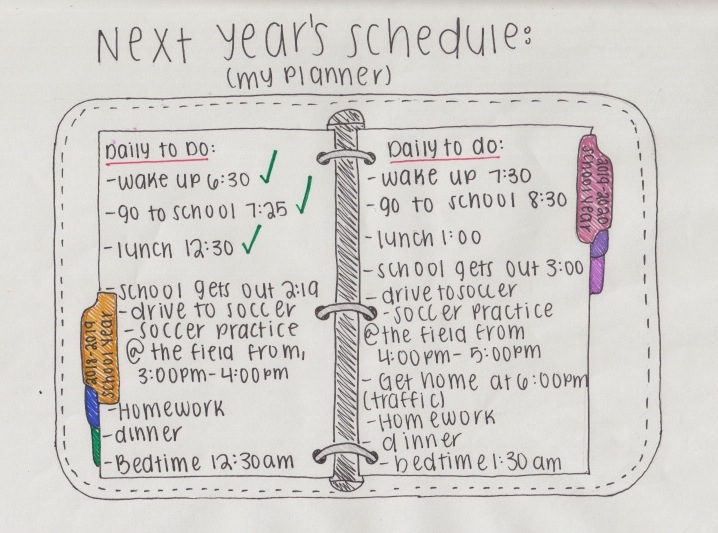 Next year's schedule:
(my planner)
Daily to Do:
-wake up 6:30 ✓
-go to school 7:25 ✓
-lunch 12:30 ✓
-school gets out 2:19
-drive to soccer
-soccer practice
@ the field from,
3:00pm-4:00pm
-Homework
-dinner
-Bedtime 12:30am
2018-2019
school year
Daily to do:
-wake up 7:30
-go to school 8:30
-lunch 1:00
-school gets out 3:00
-drive to soccer
-soccer practice
@the field from
4:00pm-5:00pm
-Get home at 6:00pm
(traffic)
-Homework
-dinner
-bedtime 1:30am
2019-2020
school year